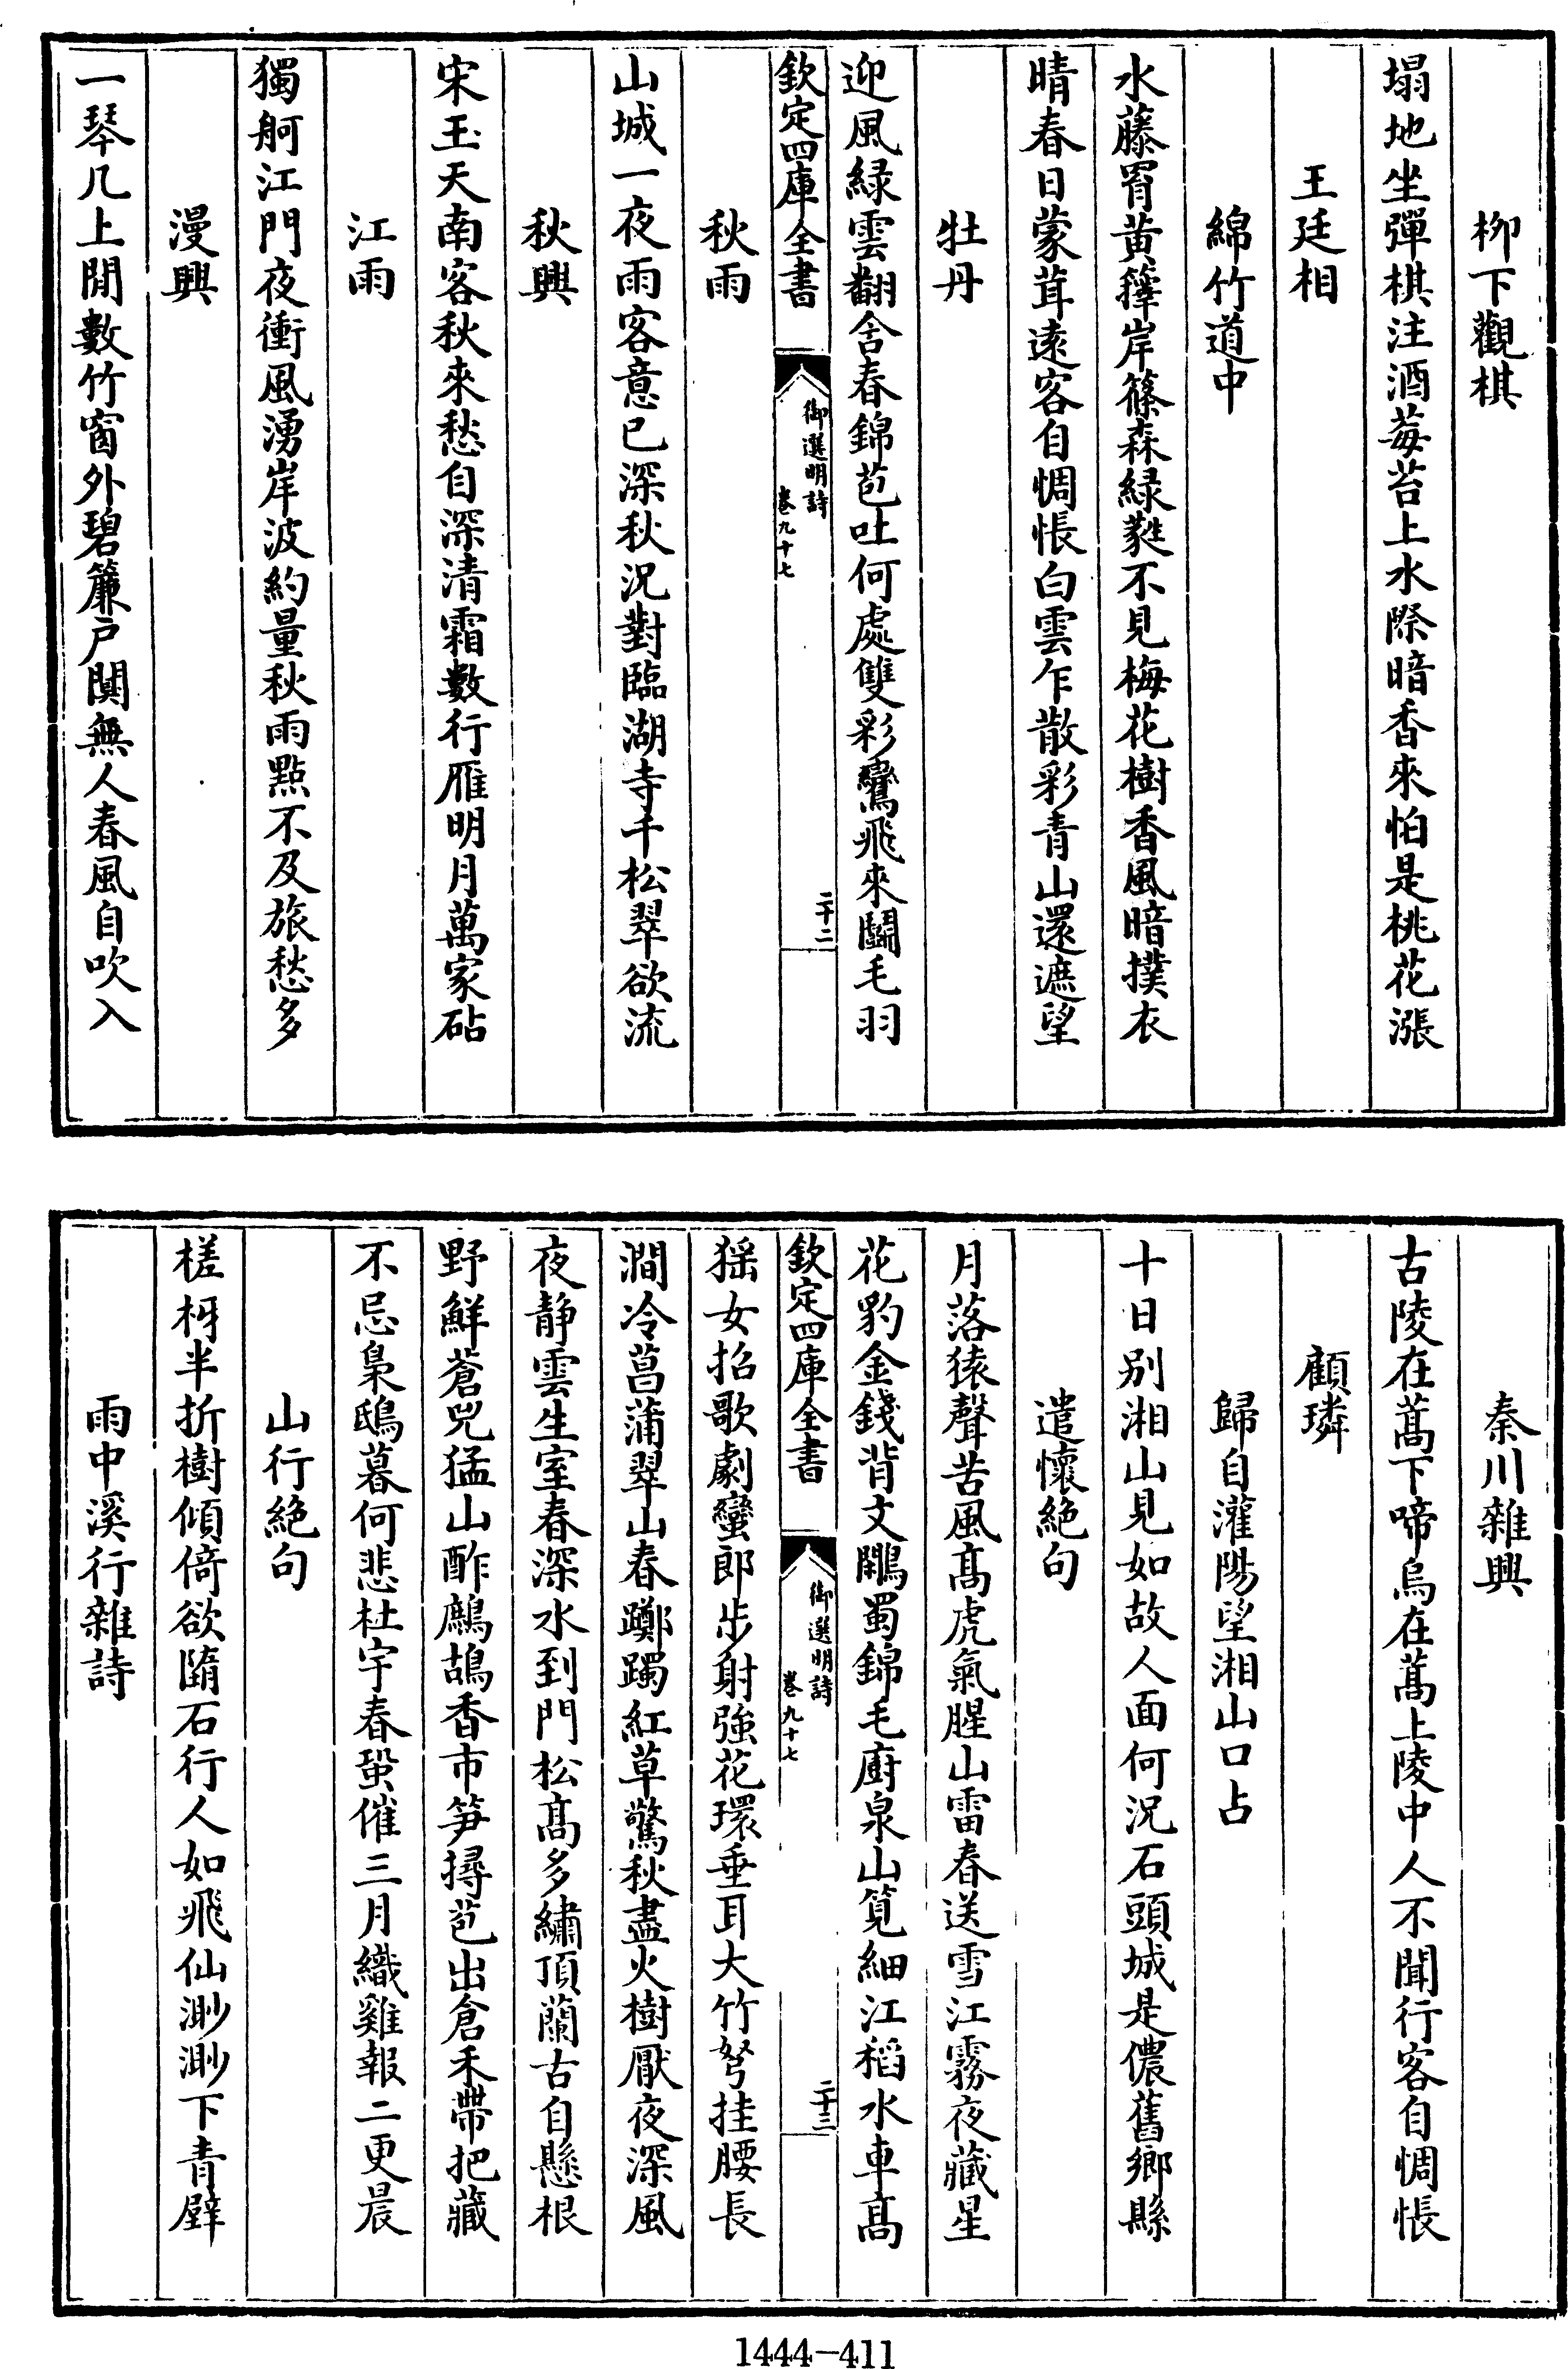 柳下觀棋
塌地坐彈棋注酒莓苔上水際暗香來怕是桃花漲
王廷相
綿竹道中
水藤罥黄籜岸篠森緑蕤不見梅花樹香風暗撲衣
晴春日蒙茸遠客自惆悵白雲乍散彩青山還遮望
牡丹
迎風緑雲翻舍春錦苞吐何處雙彩鸞飛來鬬毛羽
欽定四庫全書
御選明詩
卷九十七
二十二
秋雨
山城一夜雨客意已深秋況對臨湖寺千松翠欲流
秋興
宋玉天南客秋來愁自深清霜數行雁明月萬家砧
江雨
獨舸江門夜衝風湧岸波約量秋雨點不及旅愁多
漫興
一琴几上閒數竹窗外碧簾戸闃無人春風自吹入
秦川雜興
古陵在蒿下啼烏在蒿上陵中人不聞行客自惆悵
顧璘
歸自灌陽望湘山口占
十日别湘山見如故人面何況石頭城是儂舊鄉縣
遣懷絶句
月落猿聲苦風髙虎氣腥山雷春送雪江霧夜藏星
花豹金錢背文鷴蜀錦毛廚泉山筧細江稻水車髙
欽定四庫全書
御選明詩
卷九十七
二十三
猺女招歌劇蠻郎步射強花環垂耳大竹弩挂腰長
澗冷菖蒲翠山春躑躅紅草驚秋盡火樹厭夜深風
夜静雲生室春深水到門松髙多繡頂蘭古自懸根
野鮮蒼兕猛山酢鷓鴣香市笋撏苞出倉禾帶把藏
不忌梟鴟暮何悲杜宇春蛩催三月織雞報二更晨
山行絶句
槎枒半折樹傾倚欲隋石行人如飛仙渺渺下青壁
雨中溪行雜詩
1444-411